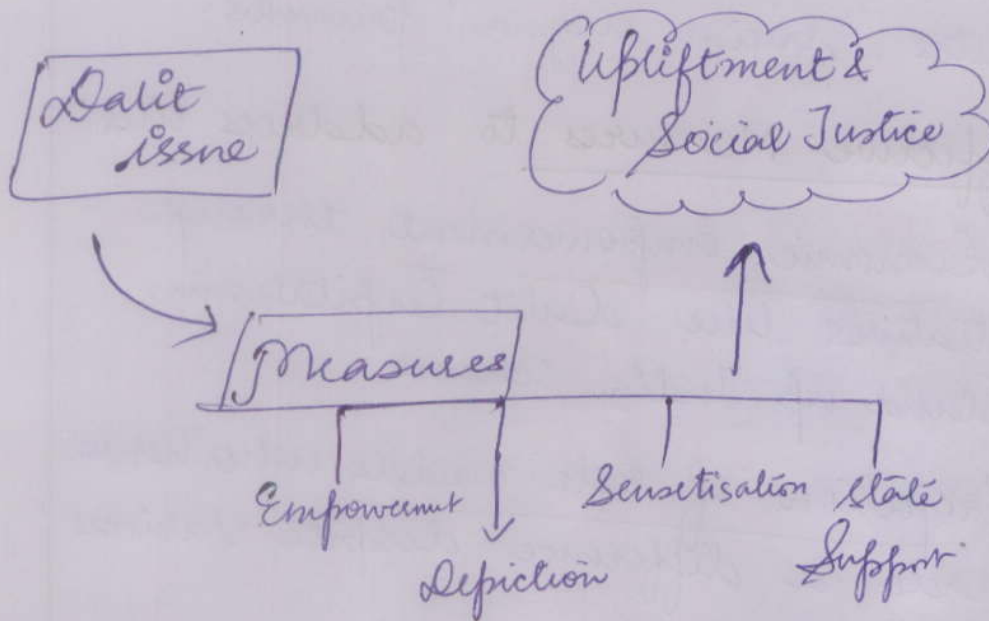 Dalit
issue
Upliftment &
Social Justice
Measures
Empowermnt
Depiction
Sensetisation
State
Support